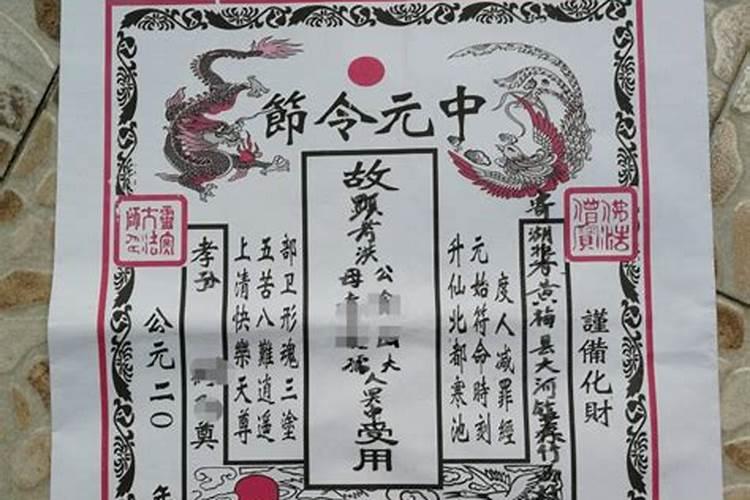 中元令節
佛法僧寶
謹備化財
黄梅县大河镇
度人减罪經
元始符命時刻
升仙北都寒池
故
顯考洪公
大
母
孺人
受用
部卫形魂三塗
五苦八難逍遥
上清快樂天尊
孝孙
奠
公元二〇
年